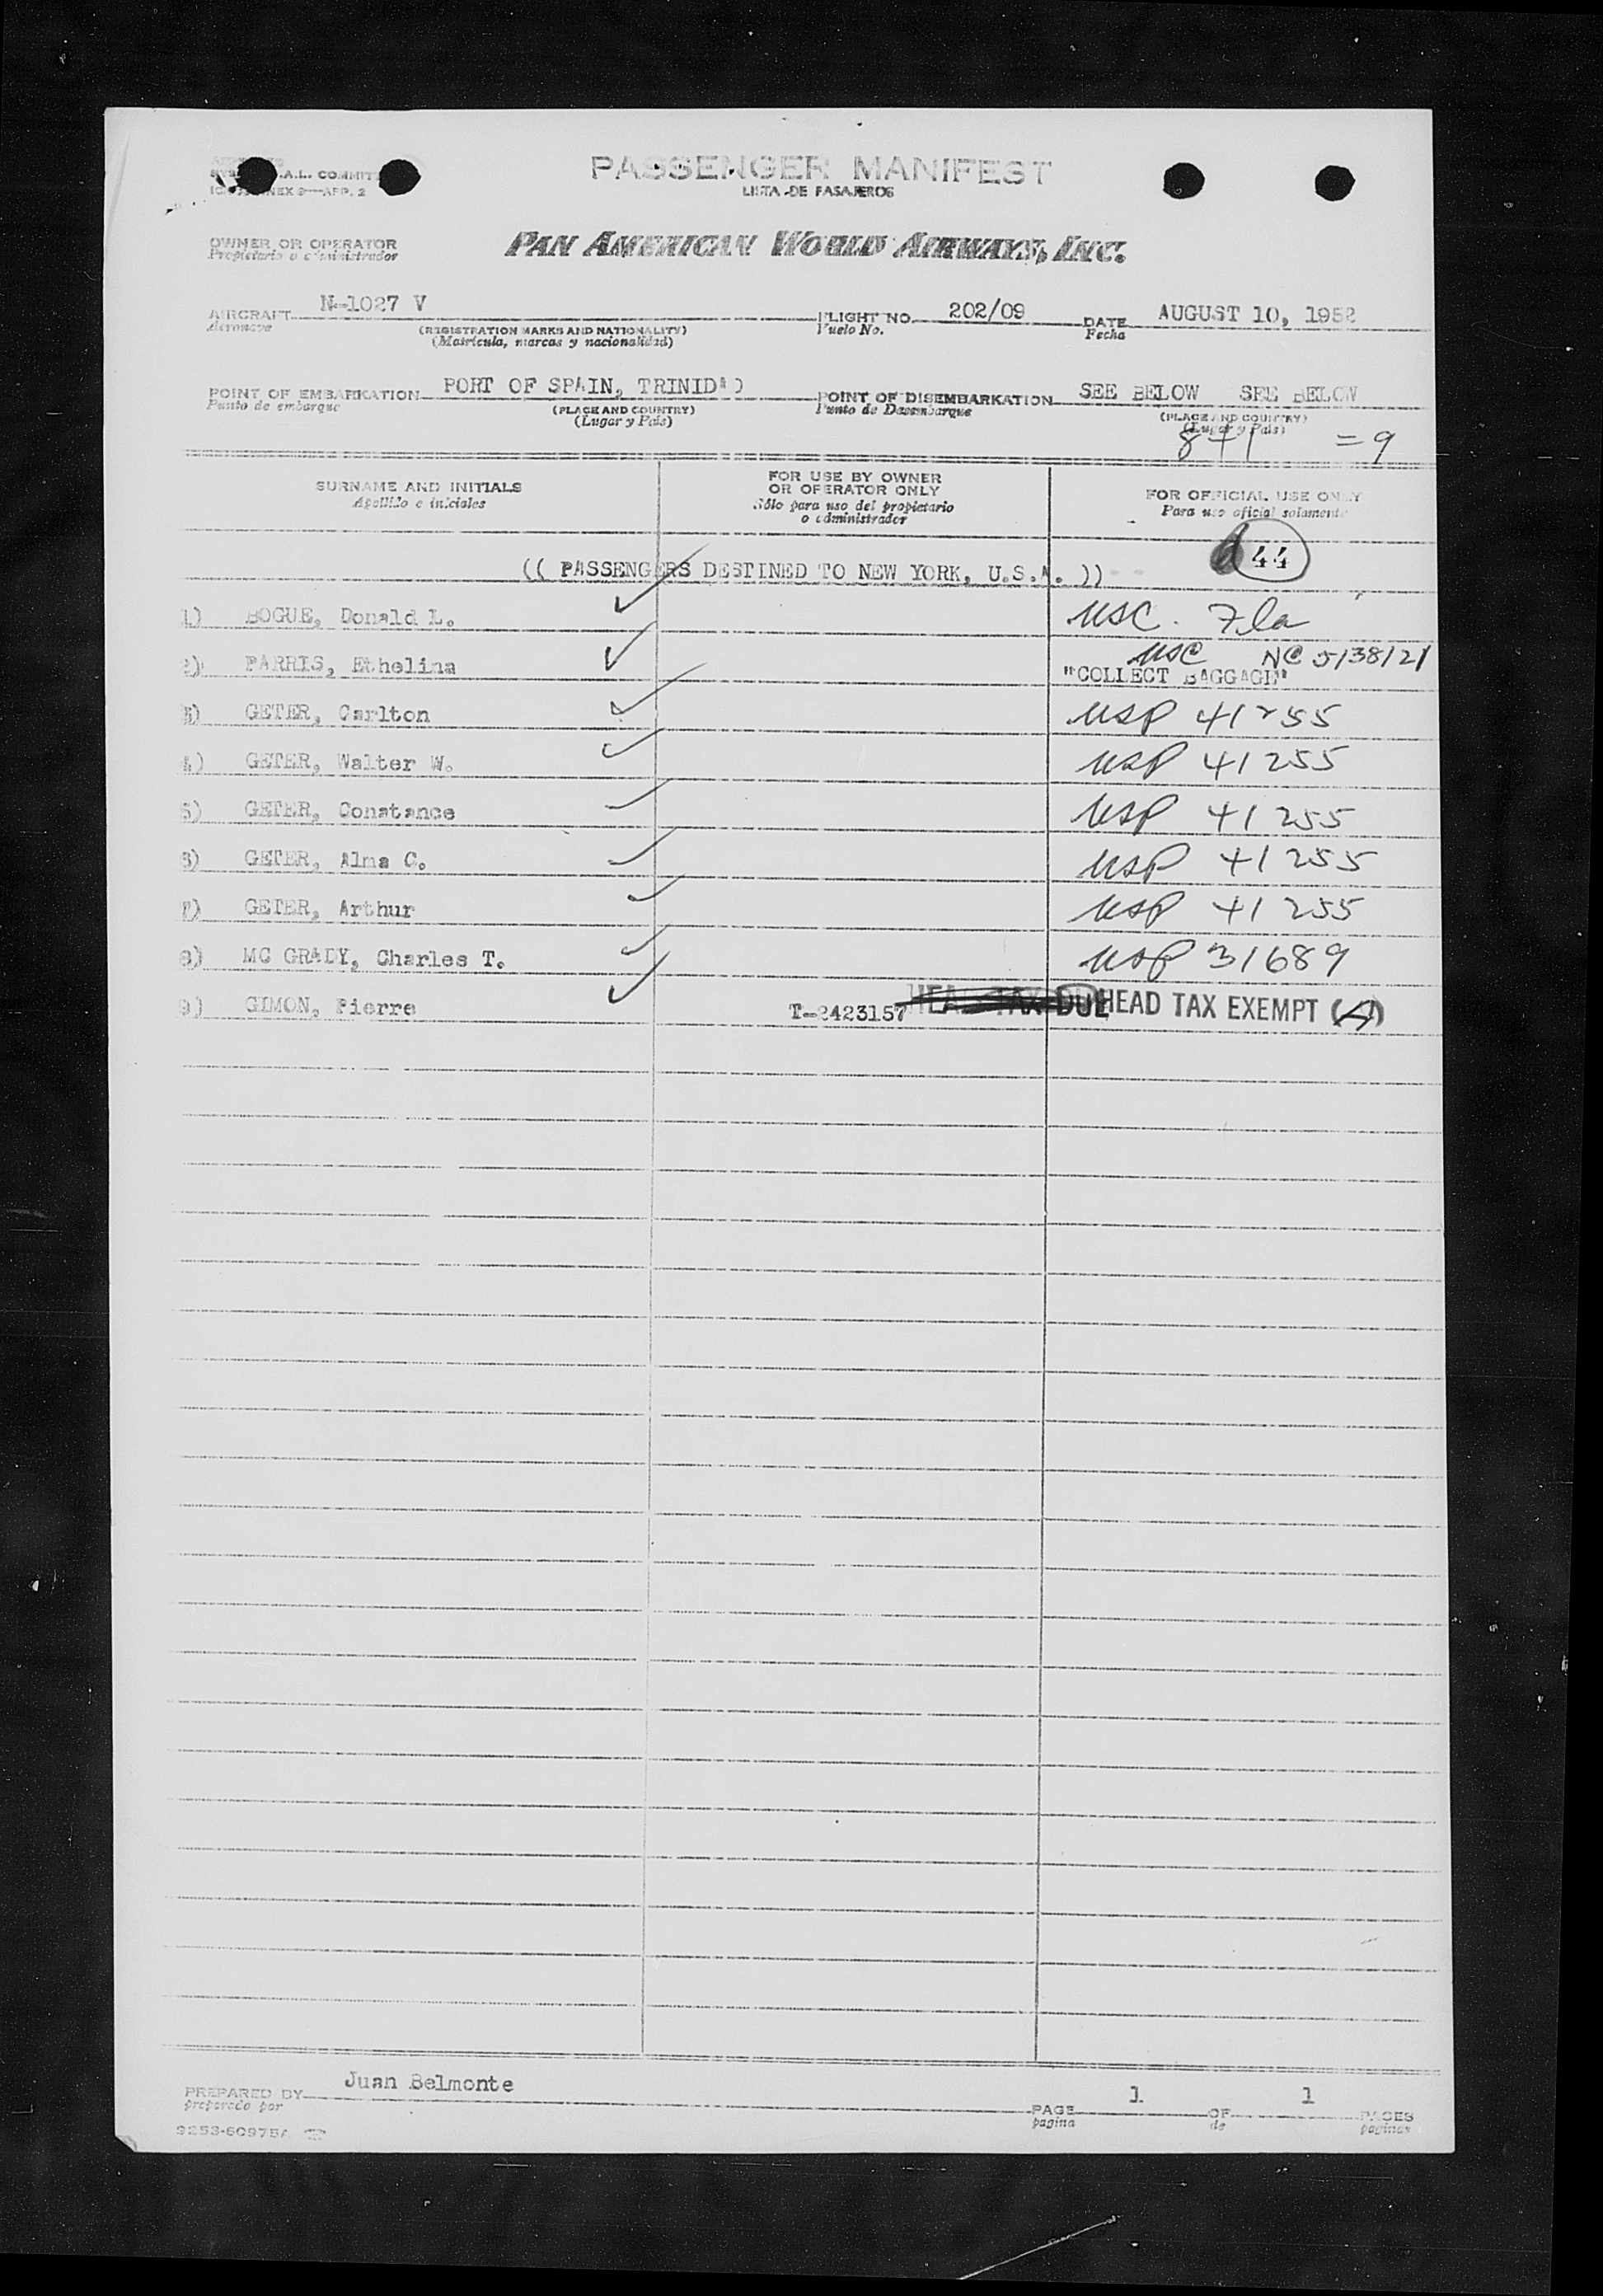 .A.L. COMMITT
NEX 9—APP. 2
PASSENGER MANIFEST
LISTA DE PASAJEROS
OWNER OR OPERATOR
Propietario o administrador
PAN AMERICAN WORLD AIRWAYS, INC.
AIRCRAFT N-1027 V FLIGHT NO. 202/09 DATE AUGUST 10, 1952
Aeronave (REGISTRATION MARKS AND NATIONALITY) Vuelo No. Fecha
(Matrícula, marcas y nacionalidad)
POINT OF EMBARKATION PORT OF SPAIN, TRINIDAD POINT OF DISEMBARKATION SEE BELOW SEE BELOW
Punto de embarque (PLACE AND COUNTRY) Punto de Desembarque (PLACE AND COUNTRY)
(Lugar y País) (Lugar y País)
8+1 =9
SURNAME AND INITIALS FOR USE BY OWNER OR OPERATOR ONLY FOR OFFICIAL USE ONLY
Apellido e iniciales Sólo para uso del propietario o administrador Para uso oficial solamente
44
(( PASSENGERS DESTINED TO NEW YORK, U.S.A. ))
1) BOGUE, Donald L. USC. Fla
2) PARRIS, Ethelina USC NC 5138121
"COLLECT BAGGAGE"
3) GETER, Carlton USP 41255
4) GETER, Walter W. USP 41255
5) GETER, Constance USP 41255
6) GETER, Alma C. USP 41255
7) GETER, Arthur USP 41255
8) MC GRADY, Charles T. USP 31689
9) GIMON, Pierre T-2423157 HEAD TAX DUE HEAD TAX EXEMPT
PREPARED BY Juan Belmonte PAGE 1 OF 1 PAGES
preparado por pagina de paginas